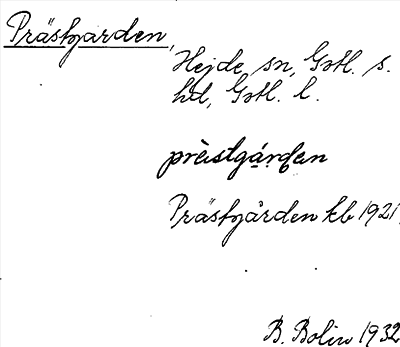 Prästgarden,
Hejde sn, Gotl. s.
hd, Gotl. l.
prè̀stgá̱rdən
Prästgården kb 1921.
B. Bolin 1932